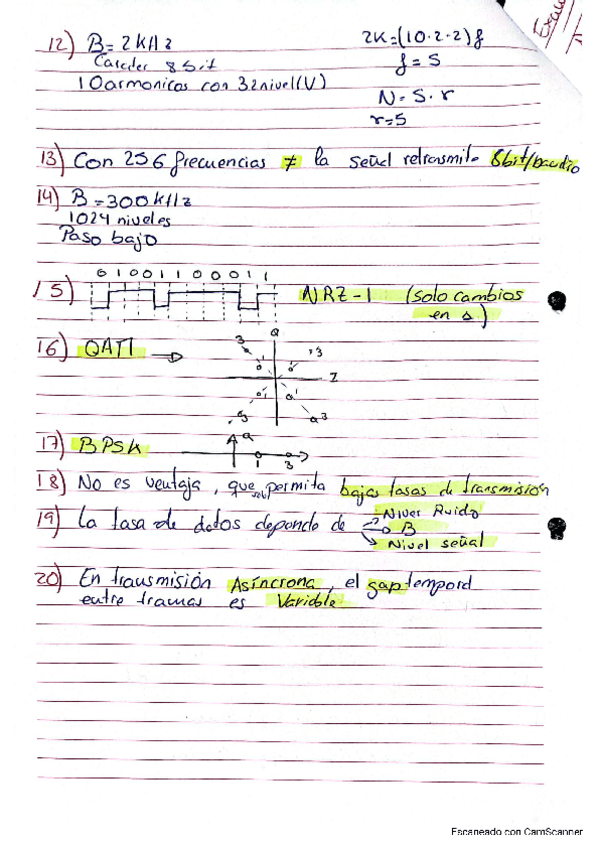 12) B= 2kHz
Carácter 8 bit
10 armonicos con 32 nivel (V)
2K=(10·2·2)f
f = S
N= S·r
r=5
13) Con 256 frecuencias ≠ la señal retrasmite 8bit/baudio
14) B = 300kHz
1024 niveles
Paso bajo
15) 0 1 0 0 1 1 0 0 0 1 1 NRZ-1 (solo cambios
en Δ)
16) QAM →
17) BPSK
18) No es ventaja, que permita bajas tasas de transmisión
19) la tasa de datos depende de Nivel Ruido
B
Nivel señal
20) En transmisión Asíncrona, el gap temporal
entre tramas es Variable
Escaneado con CamScanner